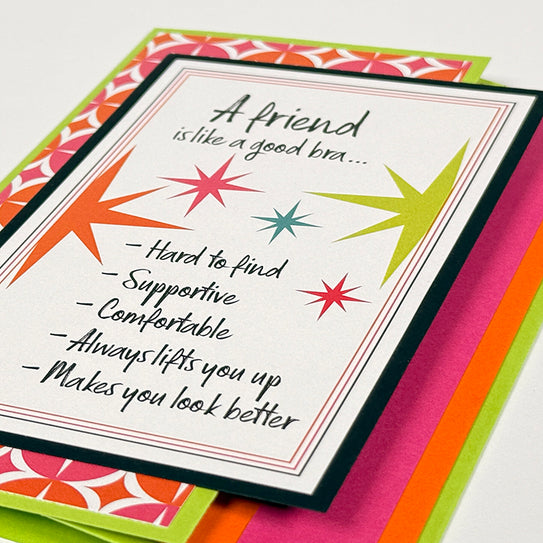 A friend
is like a good bra...
– Hard to find
– Supportive
– Comfortable
– Always lifts you up
– Makes you look better